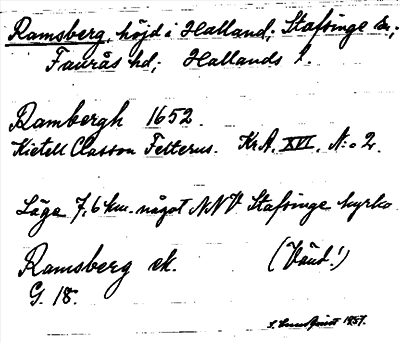 Ramsberg, höjd i Halland; Stafsinge sn;
Faurås hd; Hallands l.
Rambergh 1652.
Kietell Classon Felterus. KrA. XVI. N:o 2.
Läge 7,6 km. något NNV Stafsinge kyrka.
Ramsberg ek. (Vänd!)
G. 18.
1957.